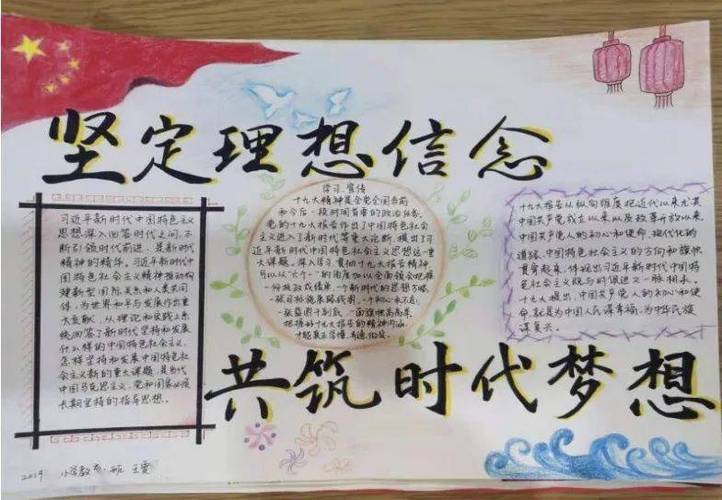 坚定理想信念
习近平新时代中国特色主义
思想深入回答时代之问,不
断引领时代前进,是新时代
精神的精华。习近平新时代中
国特色社会主义精神推动构
建新型国际关系和人类共同
体,为世界和平与发展作出重
大贡献,从理论和实践上系
统回答了新时代坚持和发展
什么样的中国特色社会主义,
怎样坚持和发展中国特色社
会主义新的重大课题,是当代
中国马克思主义,党和国家必须
长期坚持的指导思想。
学习、宣传
十九大精神是全党全国当前
和今后一段时间首要的政治任务。
党的十九大报告作出了中国特色社会
主义进入了新时代等重大论断,提出了习
近平新时代中国特色社会主义思想这一重
大课题。深入学习贯彻十九大报告精神,
可以从“六个一”的角度加以全面领会把握
一份成绩,一个新时代的思想方略,
一张蓝图干到底,一面旗帜高高举,
把握好十九大报告的精神内涵,
才能真正学懂、弄通、做实。
十九大报告从纵向维度把近代以来尤其
中国共产党成立以来以及改革开放以来,
中国共产党人的初心和使命,现代化的
道路、中国特色社会主义的方向和旗帜
贯穿起来,体现出习近平新时代中国特
色社会主义既与时俱进又一脉相承。
十九大提出,中国共产党人的初心和使
命,就是为中国人民谋幸福,为中华民族
谋复兴。
共筑时代梦想
2019 小学教育班 王雯